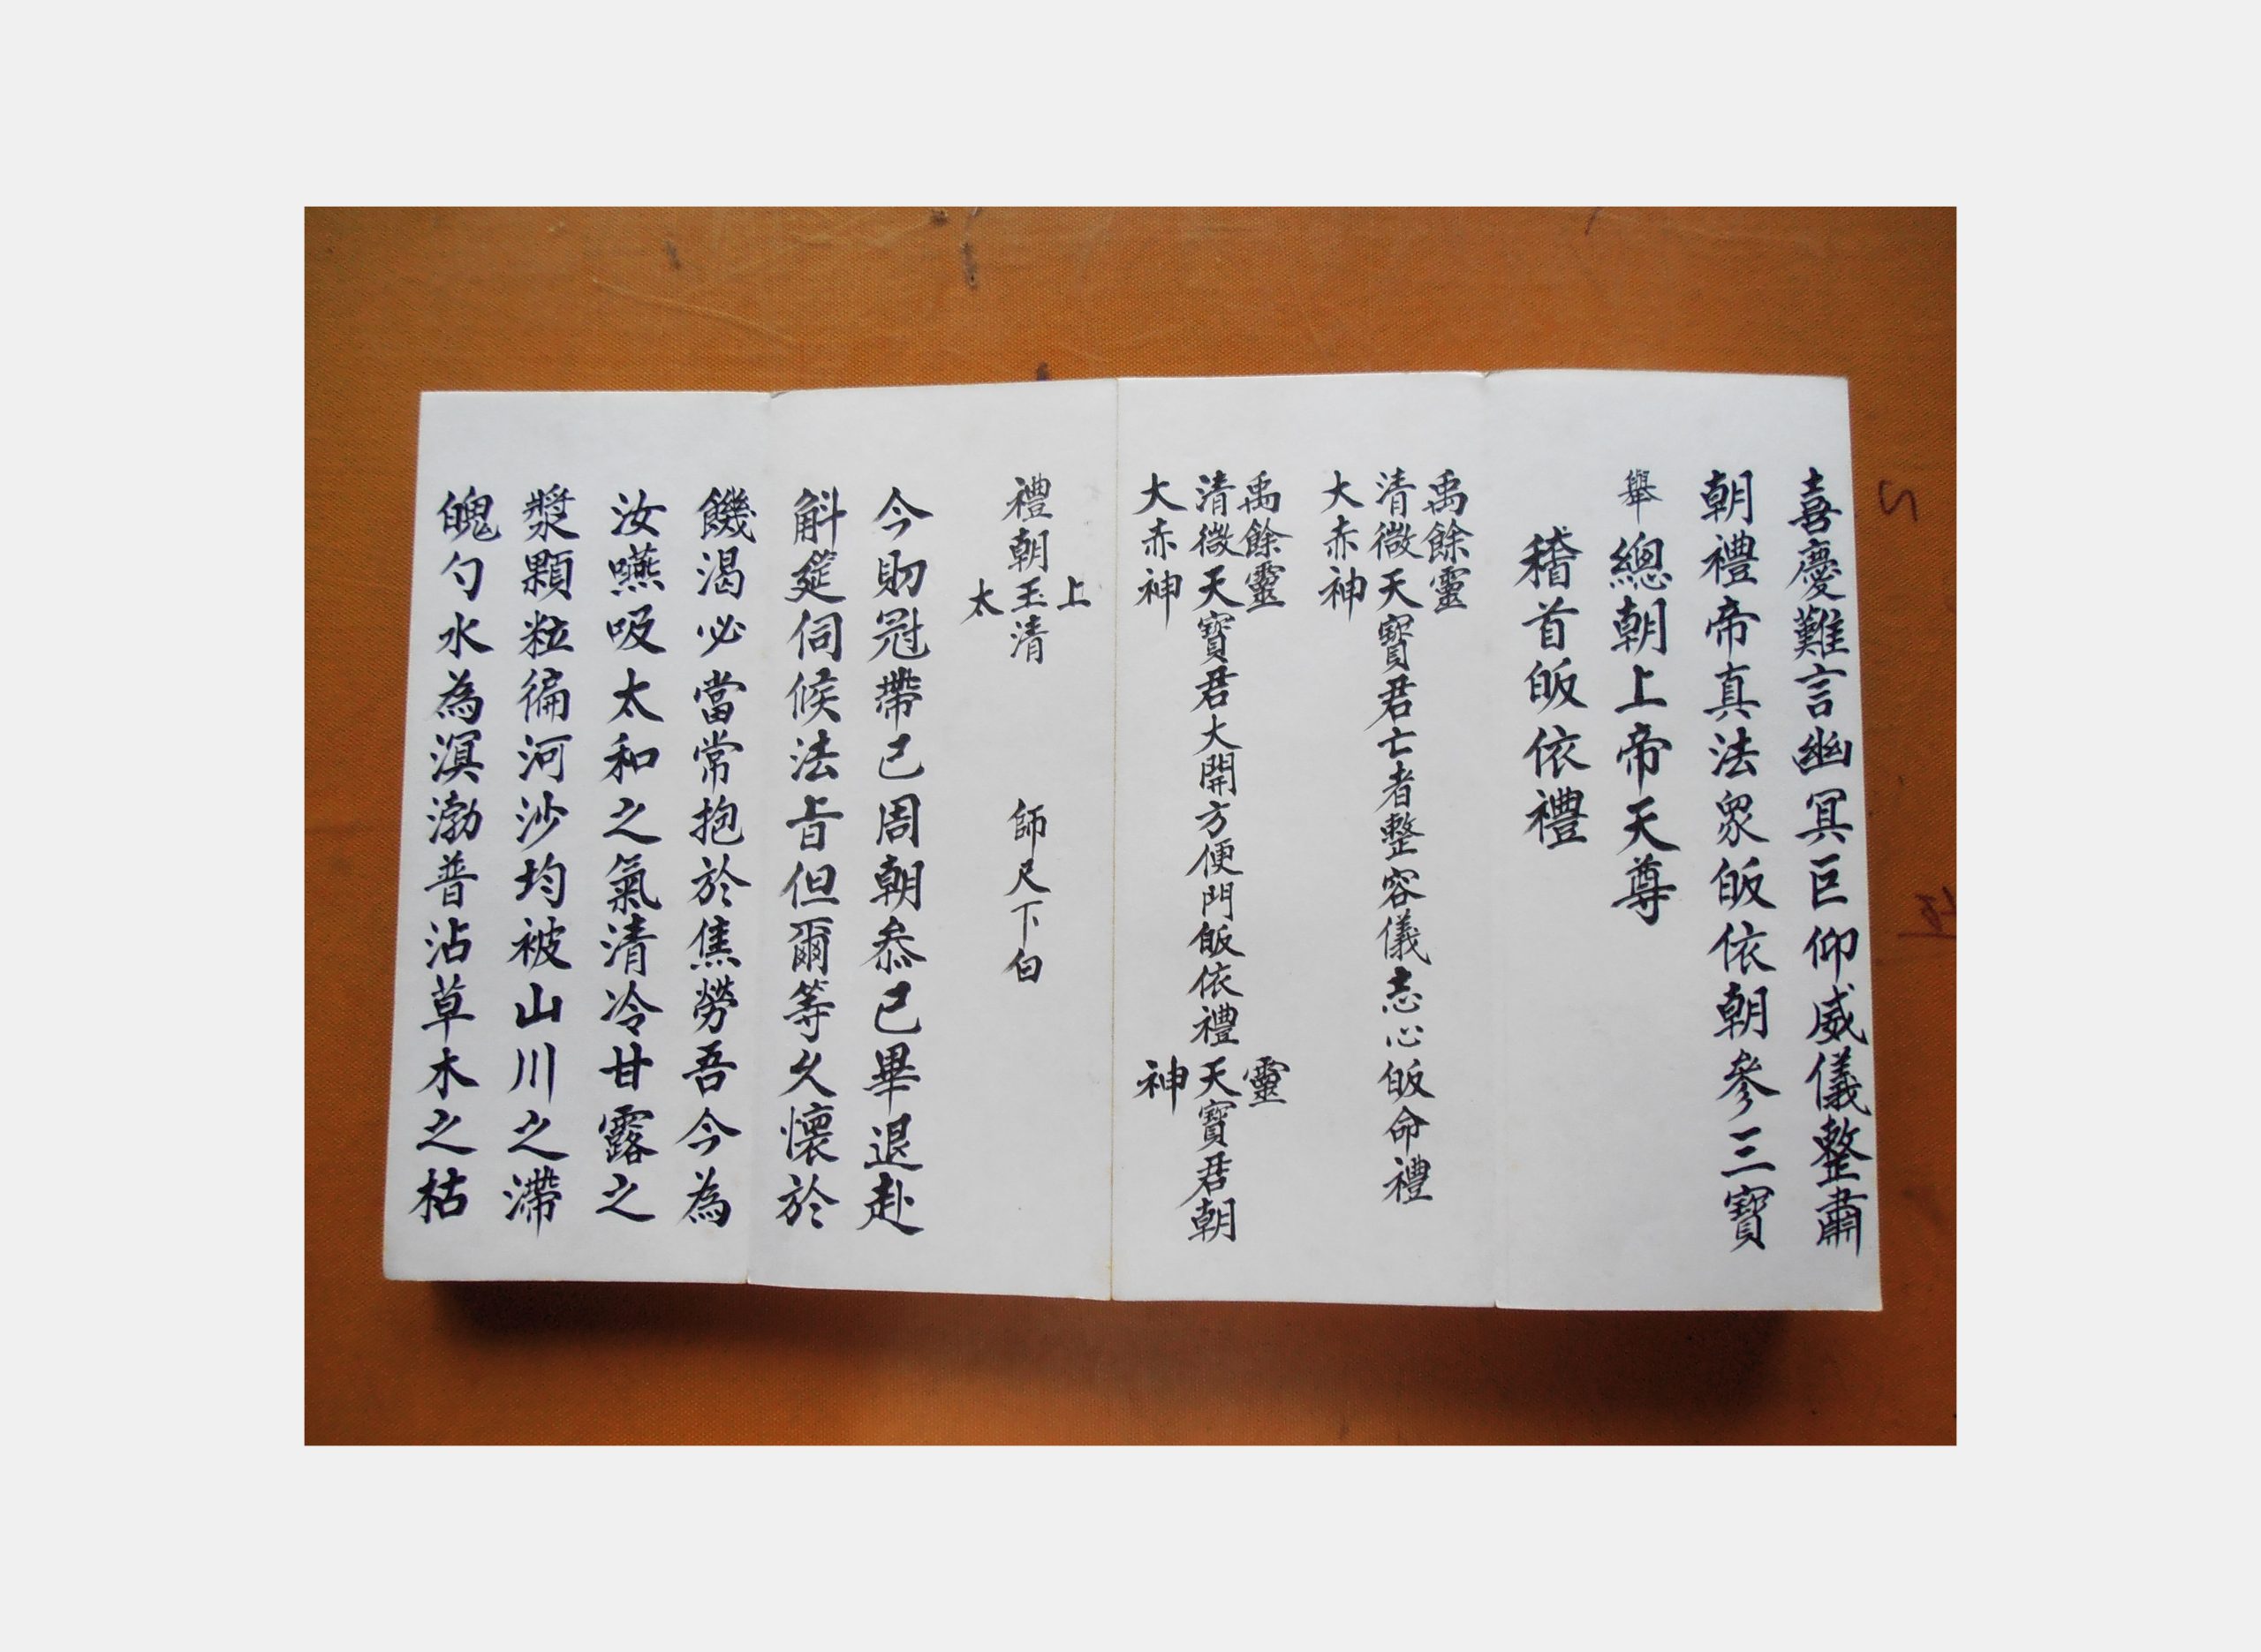 喜慶難言幽冥叵仰威儀整肅
朝禮帝真法眾皈依朝參三寶
舉總朝上帝天尊
稽首皈依禮
禹餘靈
清微天寶君亡者整容儀志心皈命禮
大赤神
禹餘靈 靈
清微天寶君大開方便門皈依禮天寶君朝
大赤神 神
上
禮朝玉清 師尺下白
太
今則冠帶已周朝叅已畢退赴
斛筵伺候法旨但爾等久懷於
饑渴必當常抱於焦勞吾今為
汝嚥吸太和之氣清冷甘露之
漿顆粒徧河沙均被山川之滯
魄勺水為溟渤普沾草木之枯